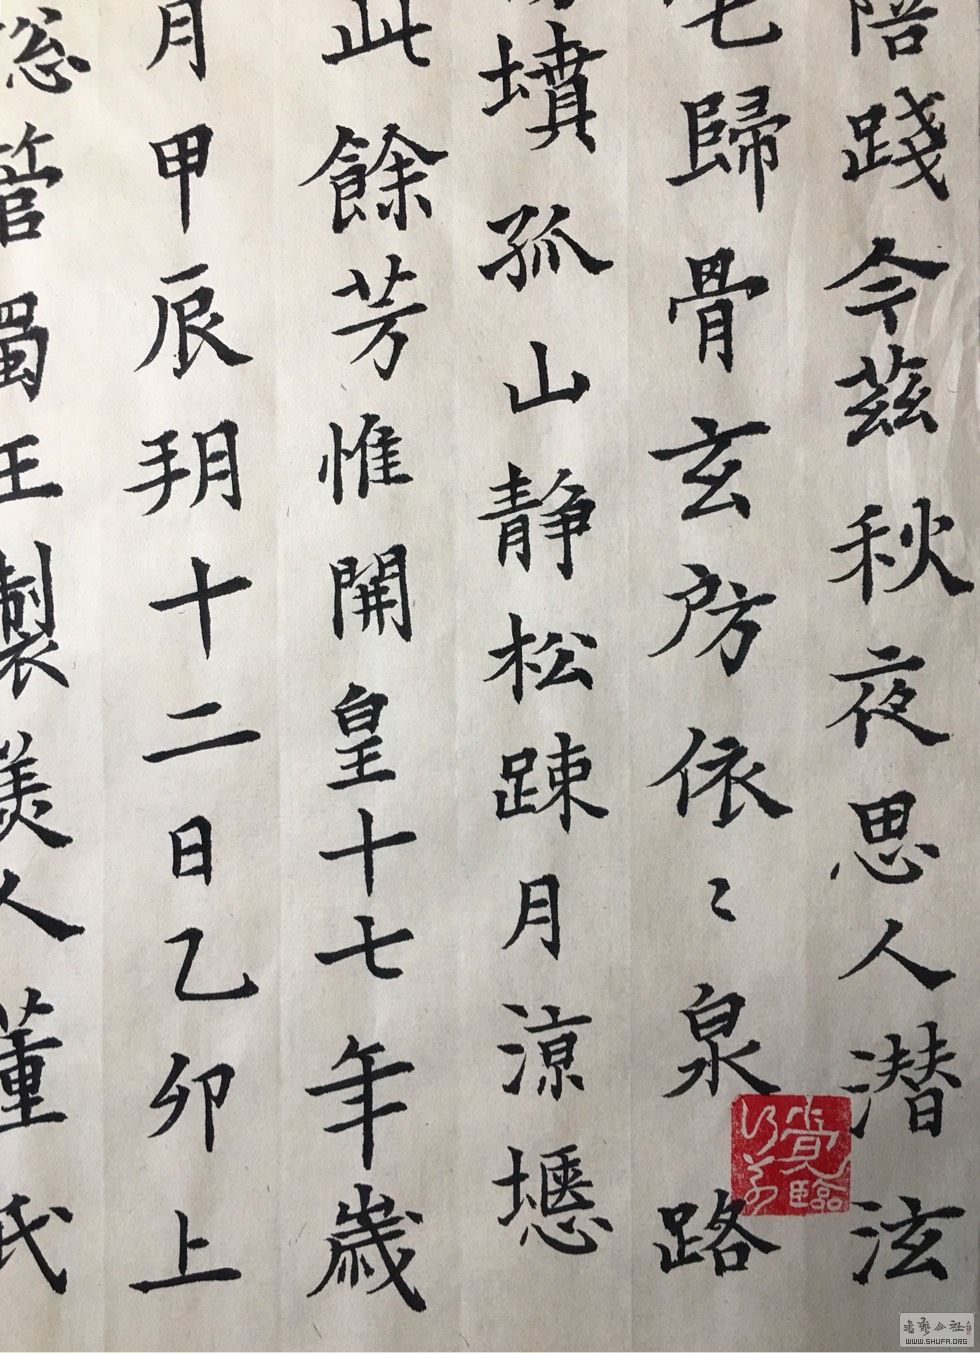 陪踐今茲秋夜思人潜泫
宅歸骨玄房依〻泉路
墳孤山静松踈月涼壥
此餘芳惟開皇十七年歲
月甲辰玥十二日乙卯上
管蜀王製美人董氏
覺臨
WWW.SHUFA.ORG